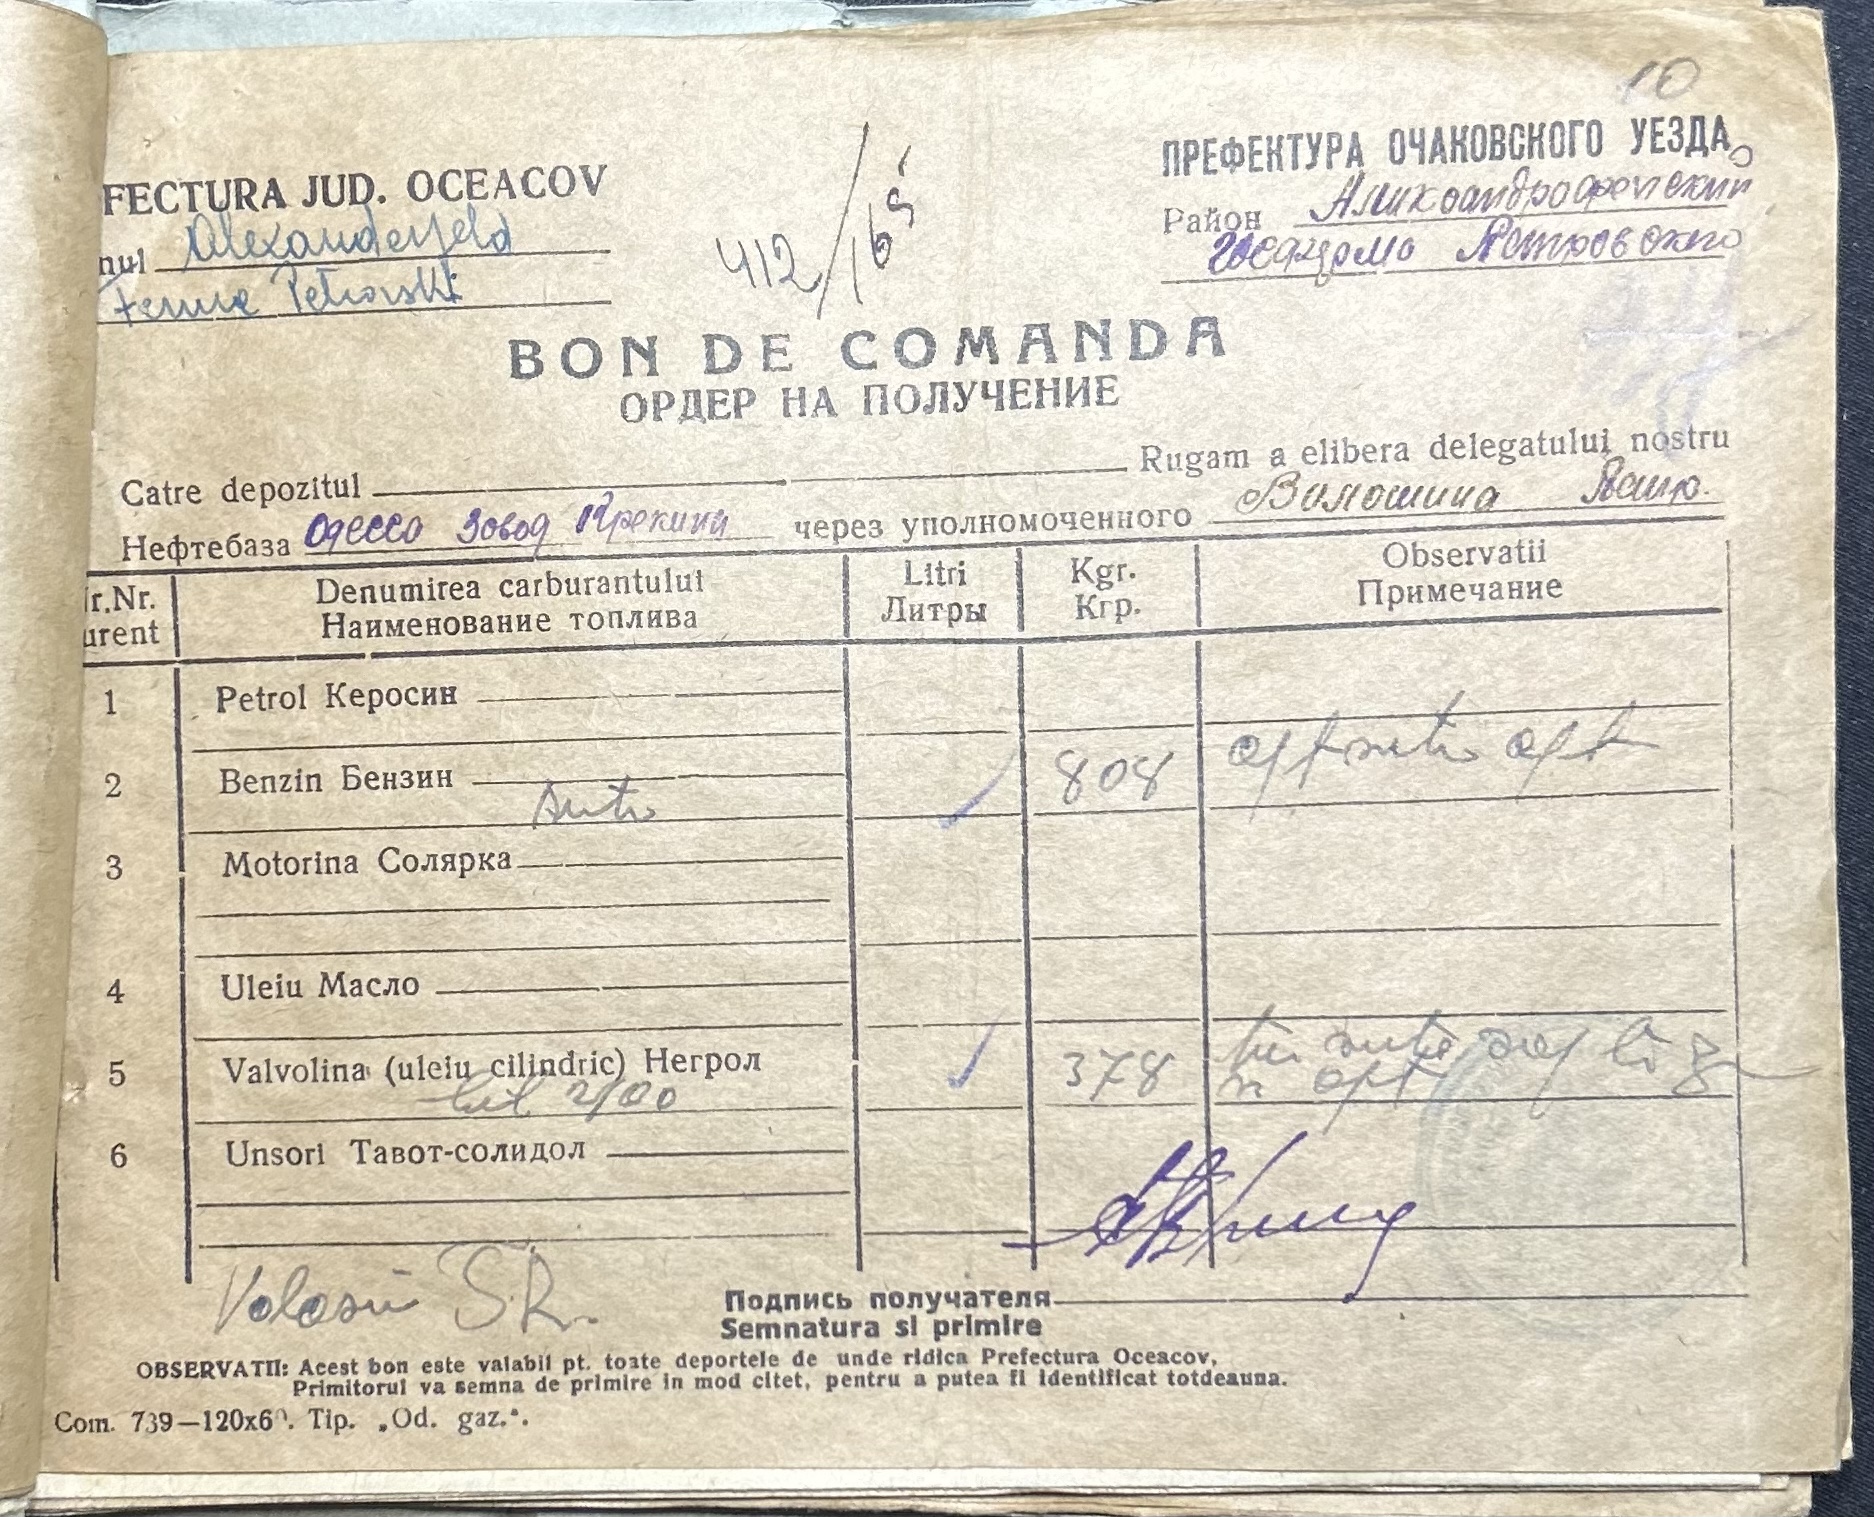 10
FECTURA JUD. OCEACOV
nul Alexanderfeld
Ferme Petrovski
412/165
ПРЕФЕКТУРА ОЧАКОВСКОГО УЕЗДА
Район
Петровского
BON DE COMANDA
ОРДЕР НА ПОЛУЧЕНИЕ
Catre depozitul Rugam a elibera delegatului nostru
Нефтебаза Одесса Завод Крекинг через уполномоченного Волошина
r.Nr. Denumirea carburantului Litri Kgr. Observatii
urent Наименование топлива Литры Кгр. Примечание
1 Petrol Керосин
2 Benzin Бензин 808 opt sute opt
auto
3 Motorina Солярка
4 Uleiu Масло
5 Valvolina (uleiu cilindric) Негрол 378 trei sute
opt
6 Unsori Тавот-солидол
Volosin
Подпись получателя
Semnatura si primire
OBSERVATII: Acest bon este valabil pt. toate deportele de unde ridica Prefectura Oceacov,
Primitorul va semna de primire in mod citet, pentru a putea fi identificat totdeauna.
Com. 739—120x60. Tip. „Od. gaz.“.